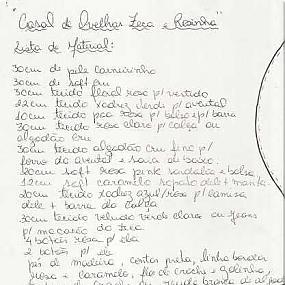 "Casal de Ovelhas Zeca e Rosinha"
Lista de Material:
30cm de pele carneirinho
30cm de soft cru
30cm tecido floral rosa p/ vestido
22cm tecido xadrez verde p/ avental
10cm tecido poa rosa p/ bolso e p/ barra
30cm tecido rosa claro p/ calça ou
algodão cru
30cm tecido algodão cru fino p/
forro do avental e saia de baixo.
20cm soft rosa pink sandalia e bolsa
12cm soft caramelo sapato dele + manta
20cm tecido xadrez azul/rosa p/ camisa
dele + barra da calça
30cm tecido veludo verde claro ou jeans
p/ macacão do Zeca
4 botões rosa p/ ela
2 botões p/ ele
pés de madeira, contas preta, linha bordar
rosa e caramelo, fio de crochê